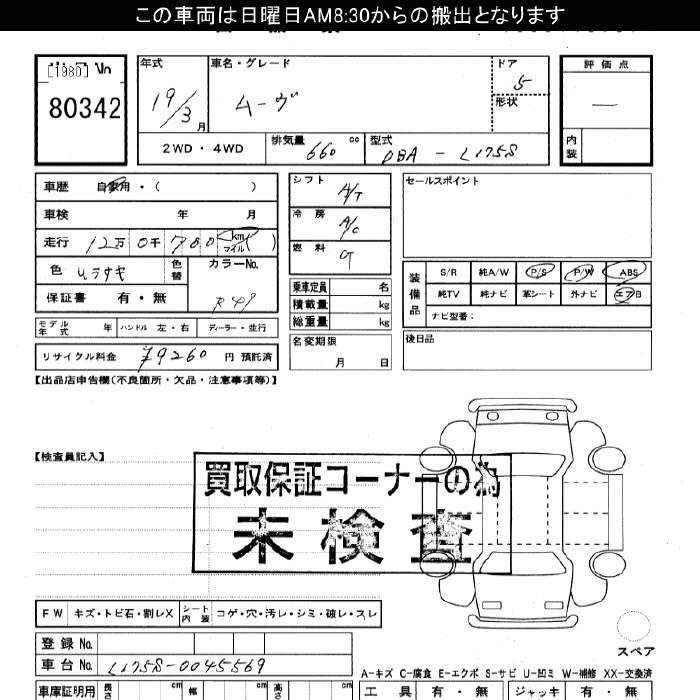 この車両は日曜日AM8:30からの搬出となります
[1980] No
80342
年式 19/3 月
車名・グレード ムーヴ
ドア 5
形状
評価点 —
内装
2WD・4WD
排気量 660 cc
型式 DBA-L175S
車歴 自家用・( )
車検 年 月
走行 12万0千780 km マイル( )
色 ムラサキ 色替
カラーNo.
保証書 有・無
シフト A/T
冷房 A/C
燃料
乗車定員 名
積載量 kg
総重量 kg
セールスポイント
装備品
S/R 純A/W P/S P/W ABS
純TV 純ナビ 革シート 外ナビ エアB
ナビ型番:
モデル年式 年 ハンドル 左・右 ディーラー・並行
リサイクル料金 ¥9260 円 預託済
名変期限 月 日
後日品
【出品店申告欄(不良箇所・欠品・注意事項等)】
【検査員記入】
買取保証コーナーの為
未検査
FW キズ・トビ石・割レX シート内装 コゲ・穴・汚レ・シミ・破レ・スレ
スペア
登録No.
車台No. L175S-0045569
A-キズ C-腐食 E-エクボ S-サビ U-凹ミ W-補修 XX-交換済
車庫証明用 長さ cm 幅 cm 高さ cm
工具 有・無 ジャッキ 有・無